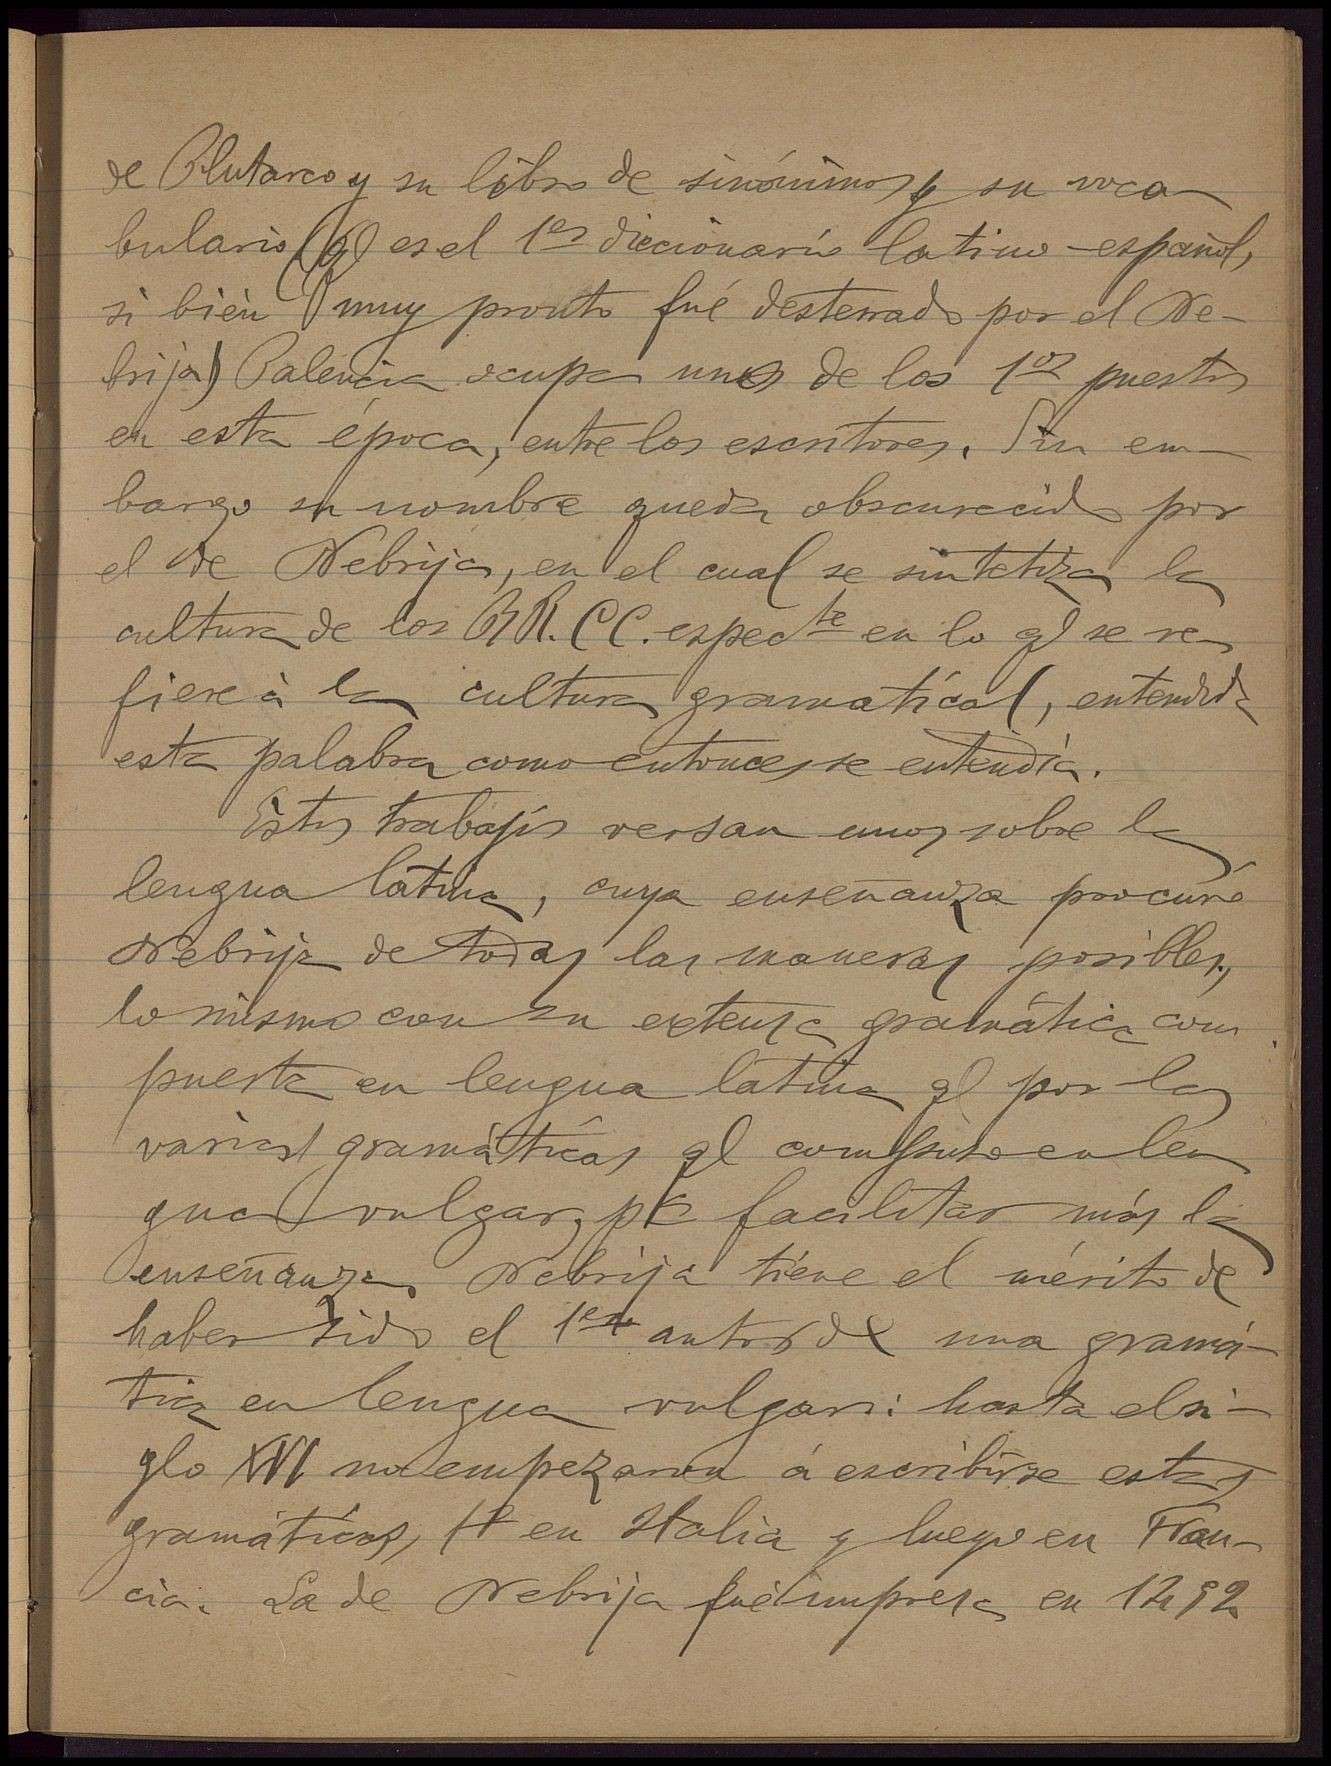 de Plutarco y su libro de sinónimos y su voca
bulario (ql es el 1er diccionario latino-español,
si bien muy pronto fué desterrado por el Ne-
brija) Palencia ocupa uno de los 1os puestos
en esta época, entre los escritores. Sin em-
bargo su nombre queda obscurecido por
el de Nebrija, en el cual se sintetiza la
cultura de los RR. CC. especte en lo ql se re
fiere à la cultura gramatical, entendida
esta palabra como entonces se entendía.
Estos trabajos versan unos sobre la
lengua latina, cuya enseñanza procuró
Nebrija de todas las maneras posibles,
lo mismo con su extensa gramática com
puesta en lengua latina ql por las
varias gramáticas ql compuso en len
gua vulgar, pa facilitar más la
enseñanza. Nebrija tiene el mérito de
haber sido el 1er autor de una gramá-
tica en lengua vulgar: hasta el si-
glo XVI no empezaron á escribirse estas
gramáticas, 1o en Italia y luego en Fran-
cia. La de Nebrija fué impresa en 1492